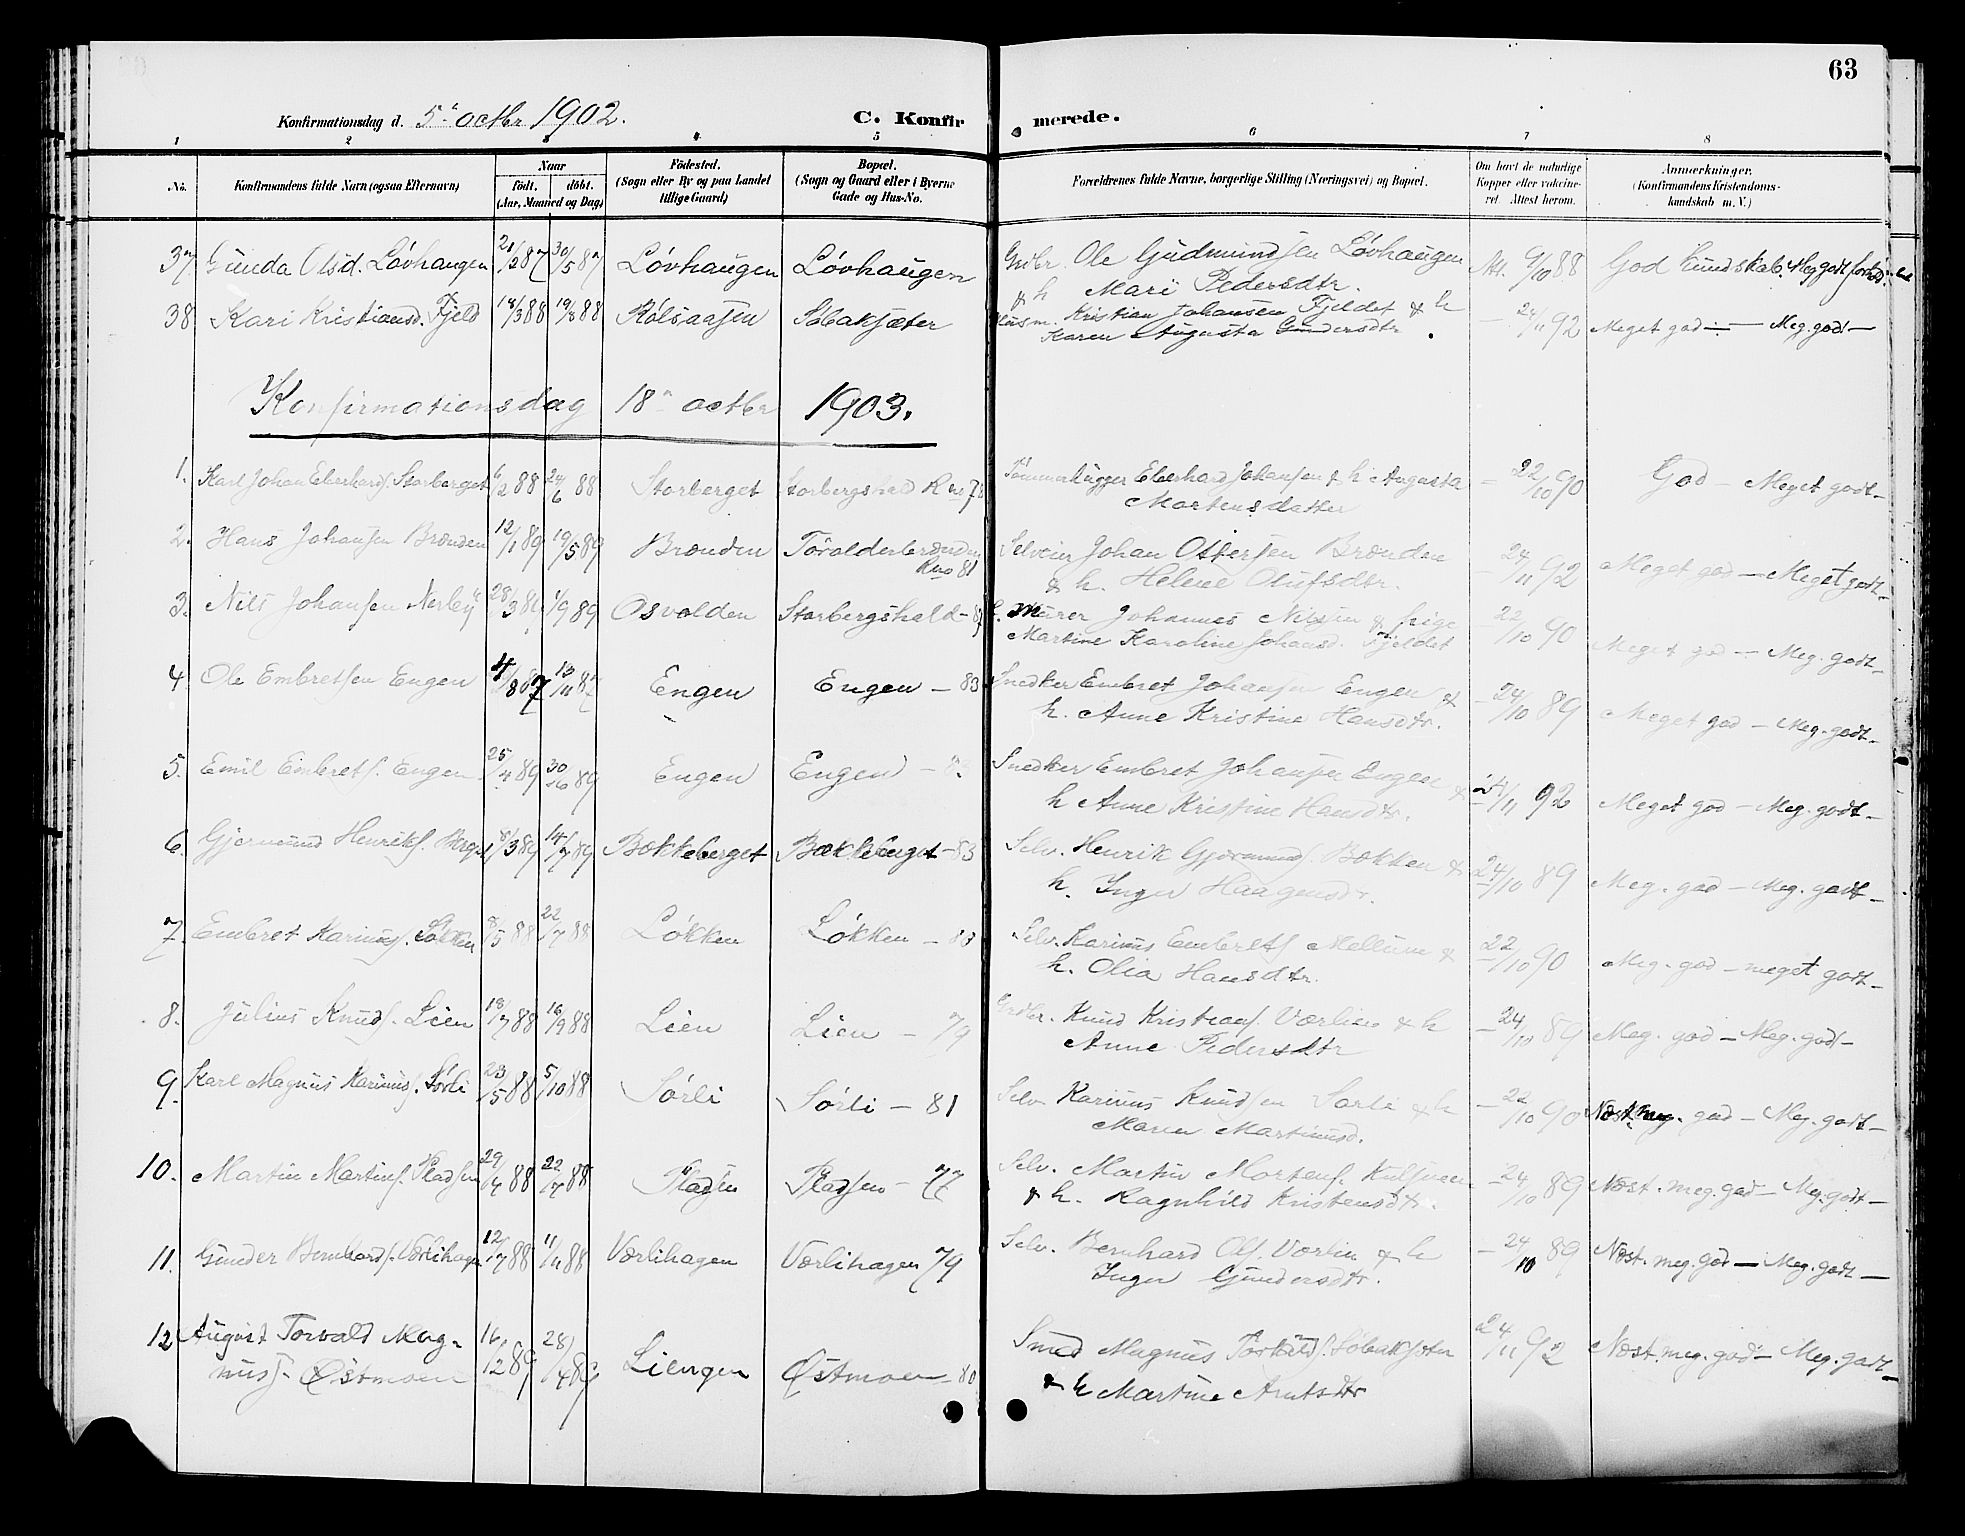 63
Konfirmationsdag d. 5te octbr 1902. C. Konfirmerede.
1 2 3 4 5 6 7 8
No. Konfirmandens fulde Navn (ogsaa Efternavn) Naar födt. döbt. (Aar, Maaned og Dag) Födested. (Sogn eller By og paa Landet tillige Gaard) Bopæl. (Sogn og Gaard eller i Byerne Gade og Hus-No. Forældrenes fulde Navne, borgerlige Stilling (Næringsvei) og Bopæl. Om havt de naturlige Kopper eller vaccineret. Attest herom. Anmærkninger. (Konfirmandens Kristendomskundskab m. V.)
37 Gunda Olsd. Lövhaugen 21/2 87 30/5 87 Lövhaugen Lövhaugen Grdbr. Ole Gudmundsen Lövhaugen Att. 9/10 88 God kundskab. Meg godt forhold.
& h Mari Pedersdtr.
38 Kari Kristiansd. Fjeld 18/3 88 19/8 88 Rölsaasen Söbaksæter Husm. Kristian Johansen Fjeldet & h — 24/11 92 Meget god — Meg. godt —
Karen Augusta Gundersdtr.
Konfirmationsdag 18de octbr 1903.
1. Karl Johan Eberhards. Storberget 6/2 88 24/6 88 Storberget Storbergshald R no 78 Tömmerhugger Eberhard Johansen & h Augusta — 22/10 90 God — Meget godt —
Martensdatter
2. Hans Johansen Brænden 12/1 89 19/5 89 Brænden Toralderbrænden Selveier Johan Ottersen Brænden — 24/11 92 Meget god — Meget godt —
R no 81 & h. Helene Olufsdtr.
3. Nils Johansen Nerby 28/3 1/9 89 Osvolden Storbergshald Murer Johannes Nilsen & pige — 22/10 90 Meget god — Meg. godt —
Martine Karoline Johansd. Fjeldet
4. Ole Embretsen Engen 4/8 87 13/11 87 Engen Engen — 83 Snedker Embret Johansen Engen & — 24/10 89 Meget god — Meg. godt —
h. Anne Kristine Hansdtr.
5. Emil Embrets. Engen 25/4 89 30/6 89 Engen Engen — 83 Snedker Embret Johansen Engen & 24/11 92 Meget god — Meg. godt —
h Anne Kristine Hansdtr.
6. Gjermund Henriks. 8/3 89 14/7 89 Bækkeberget Bækkeberget — 83 Selv. Henrik Gjermunds. Bækken & 24/10 89 Meg. god — Meg. godt —
h. Inger Haagensdtr.
7. Embret Karinus. Løkken 8/5 88 22/7 88 Løkken Løkken — 83 Selv. Karinus Embrets. Mellum & 22/10 90 Meg. god — meget godt —
h. Olia Hansdtr.
8. Julius Knuds. Lien 18/7 88 16/9 88 Lien Lien — 79 Grdbr. Knud Kristians. Værlien & h — 24/10 89 Meg. god — Meg. godt —
Anne Pedersdtr
9. Karl Magnus Karinus. Sörli 23/5 88 5/10 88 Sörli Sörli — 81 Selv. Karinus Knudsen Sörli & h — 22/10 90 Næst. meg. god — Meg. godt —
Maren Martinusd.
10. Martin Martins. Pladsen 29/4 88 22/7 88 Pladsen Pladsen — 77 Selv. Martin Mortens. — 24/10 89 Næst. meg. god — Meg. godt —
& h. Ragnhild Kristensdtr.
11. Gunder Bernhards. Værlihagen 12/7 88 11/11 88 Værlihagen Værlihagen 79 Selv. Bernhard Ols. Værlien & h — 24/10 89 Næst. meg. god — Meg. godt —
Inger Gundersdtr.
12. August Torvald Mag- 16/12 89 28/4 89 Liengen Østmoen — 80 Smed Magnus Torkilds. Söbaksæter 24/11 92 Næst. meg. god — Meg. godt —
nuss. Østmoen & h Martine Arntsdtr